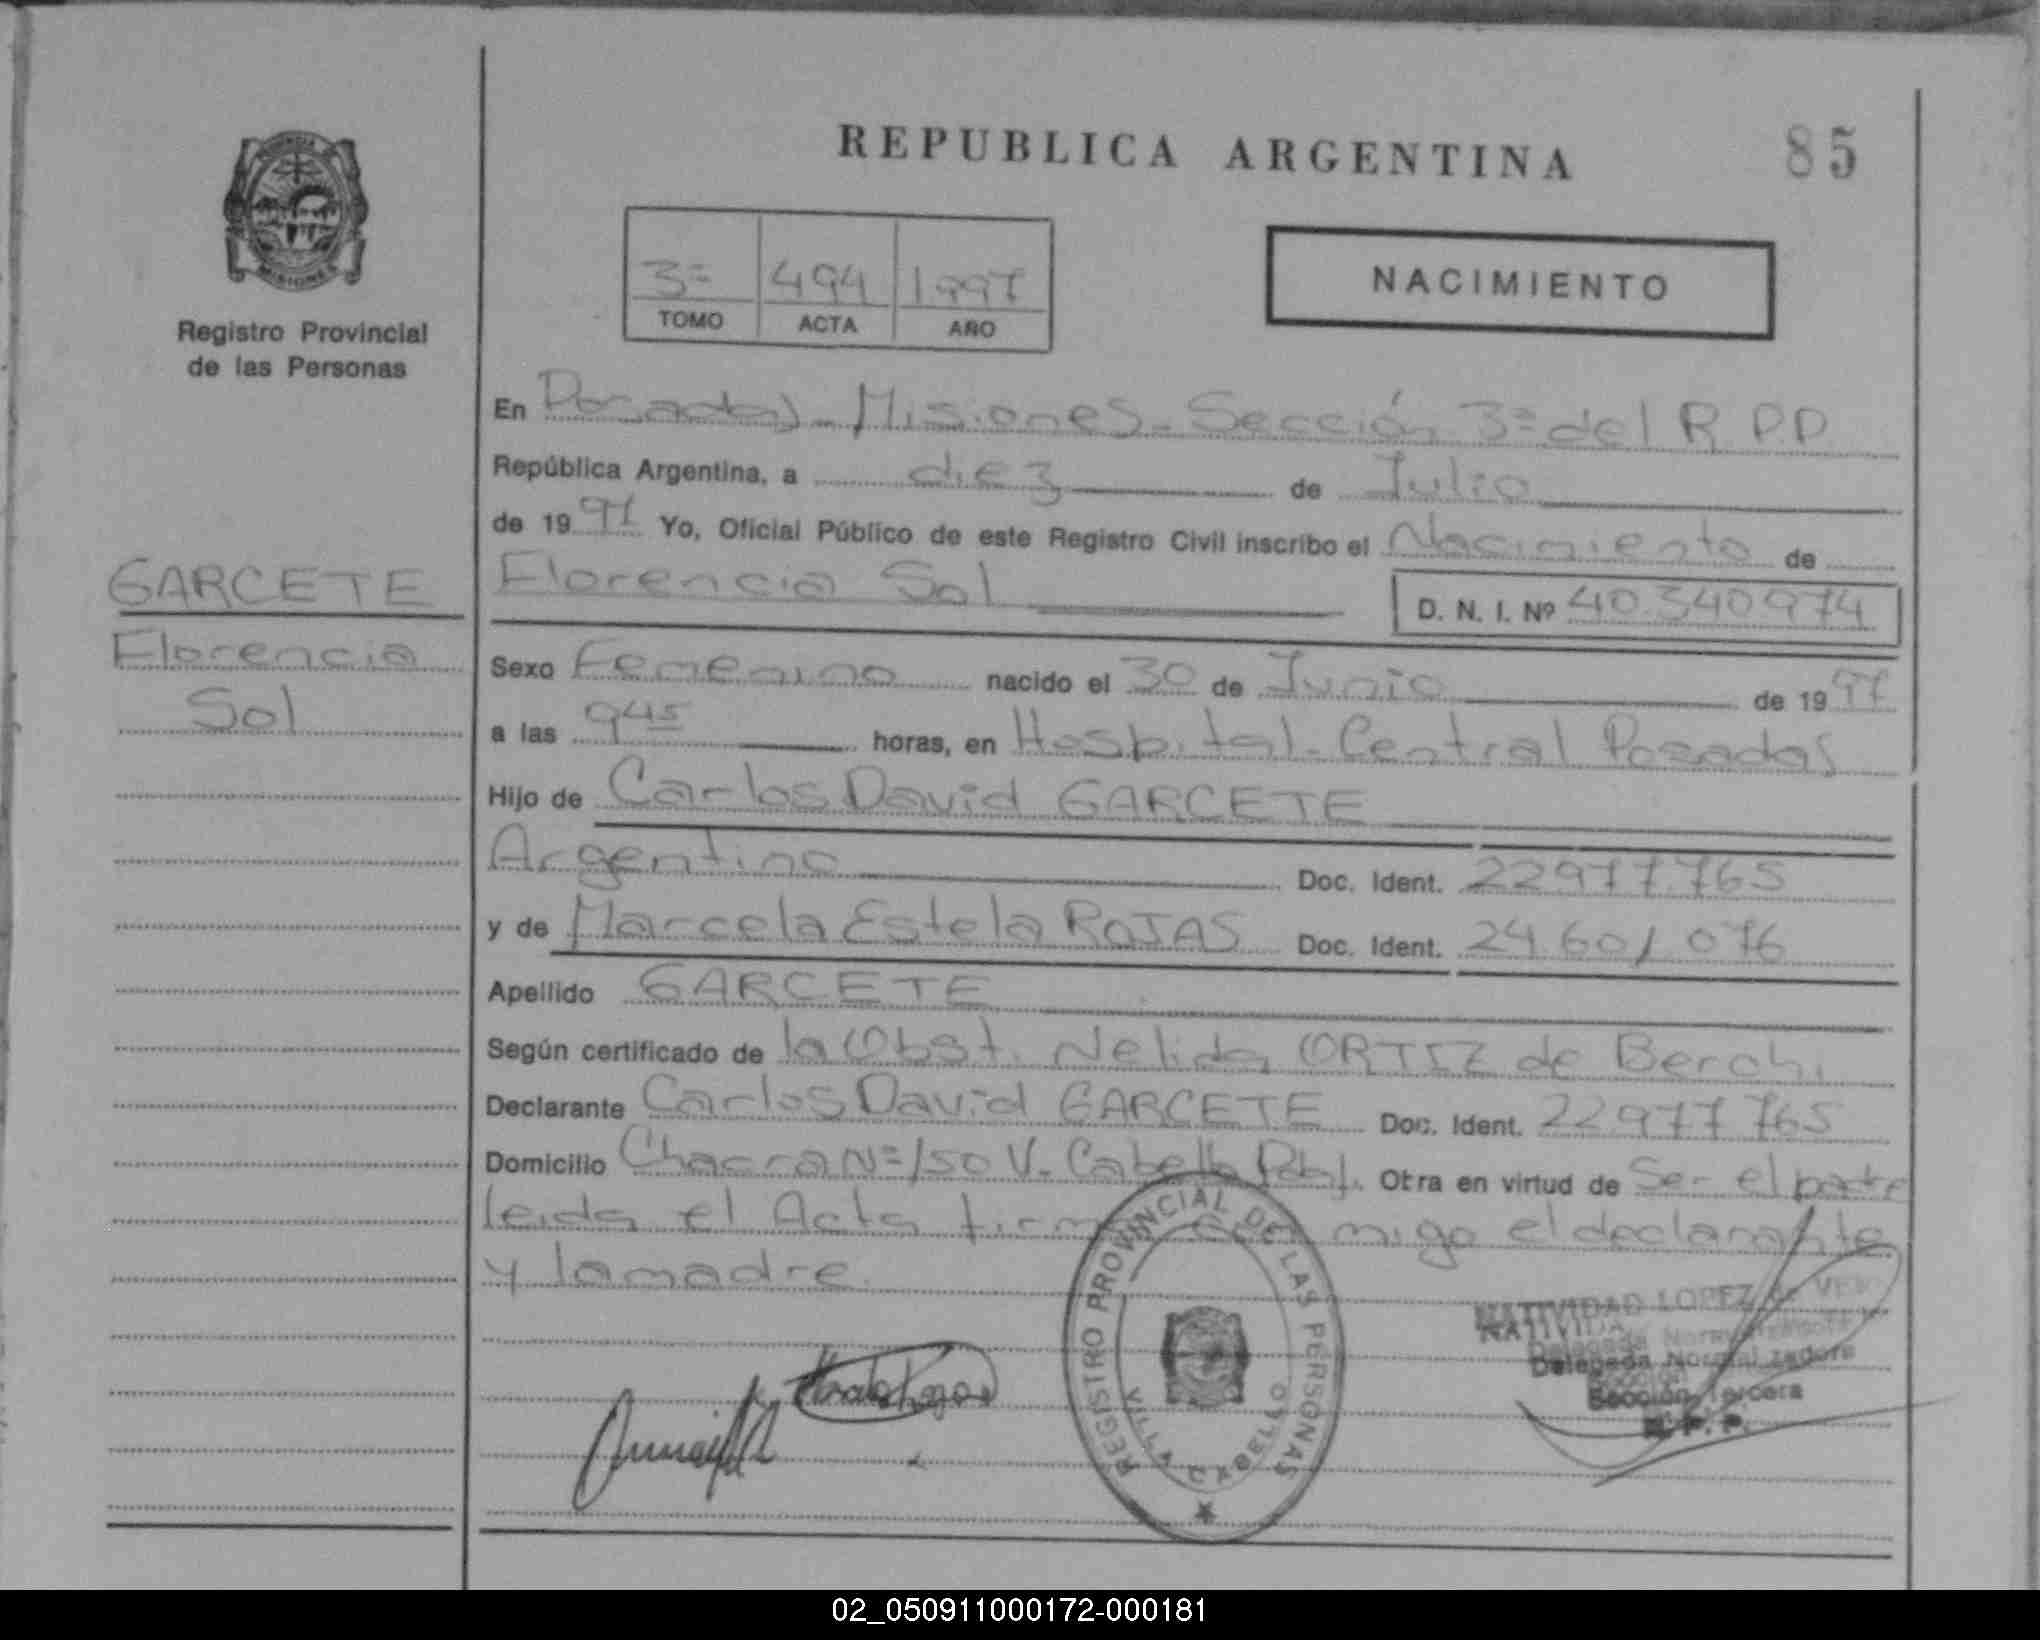 REPUBLICA ARGENTINA
85
MISIONES
Registro Provincial
de las Personas
3º 494 1997
TOMO ACTA AÑO
NACIMIENTO
En Posadas - Misiones - Sección 3º del R.P.P
República Argentina, a diez de Julio
de 1997 Yo, Oficial Público de este Registro Civil inscribo el Nacimiento de
GARCETE
Florencia
Sol
Florencia Sol D. N. I. Nº 40.340974
Sexo Femenino nacido el 30 de Junio de 1997
a las 9 45 horas, en Hospital Central Posadas
Hijo de Carlos David GARCETE
Argentino Doc. Ident. 22977.765
y de Marcela Estela ROJAS Doc. Ident. 24.601 076
Apellido GARCETE
Según certificado de la Obst. Nelida ORTIZ de Berchi
Declarante Carlos David GARCETE Doc. Ident. 22977765
Domicilio Chacra Nº 150 V. Cabello Otra en virtud de Ser el padre
leida el Acta firma conmigo el declarante
y la madre.
REGISTRO PROVINCIAL DE LAS PERSONAS
VILLA CABELLO
NATIVIDAD LOPEZ
Delegada Normalizadora
Sección Tercera
R. P. P.
02_050911000172-000181